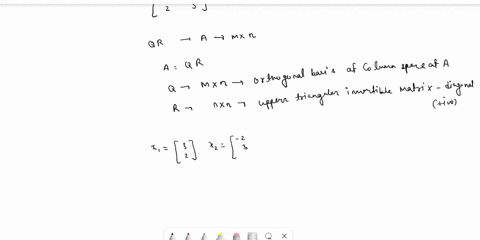 [ 2 3 ]
QR → A → mxn
A = QR
Q → mxn → orthogonal basis of Column space of A
R → nxn → upper triangular invertible matrix - diagonal
(+ive)
x₁ = [3 2] x₂ = [-2 3